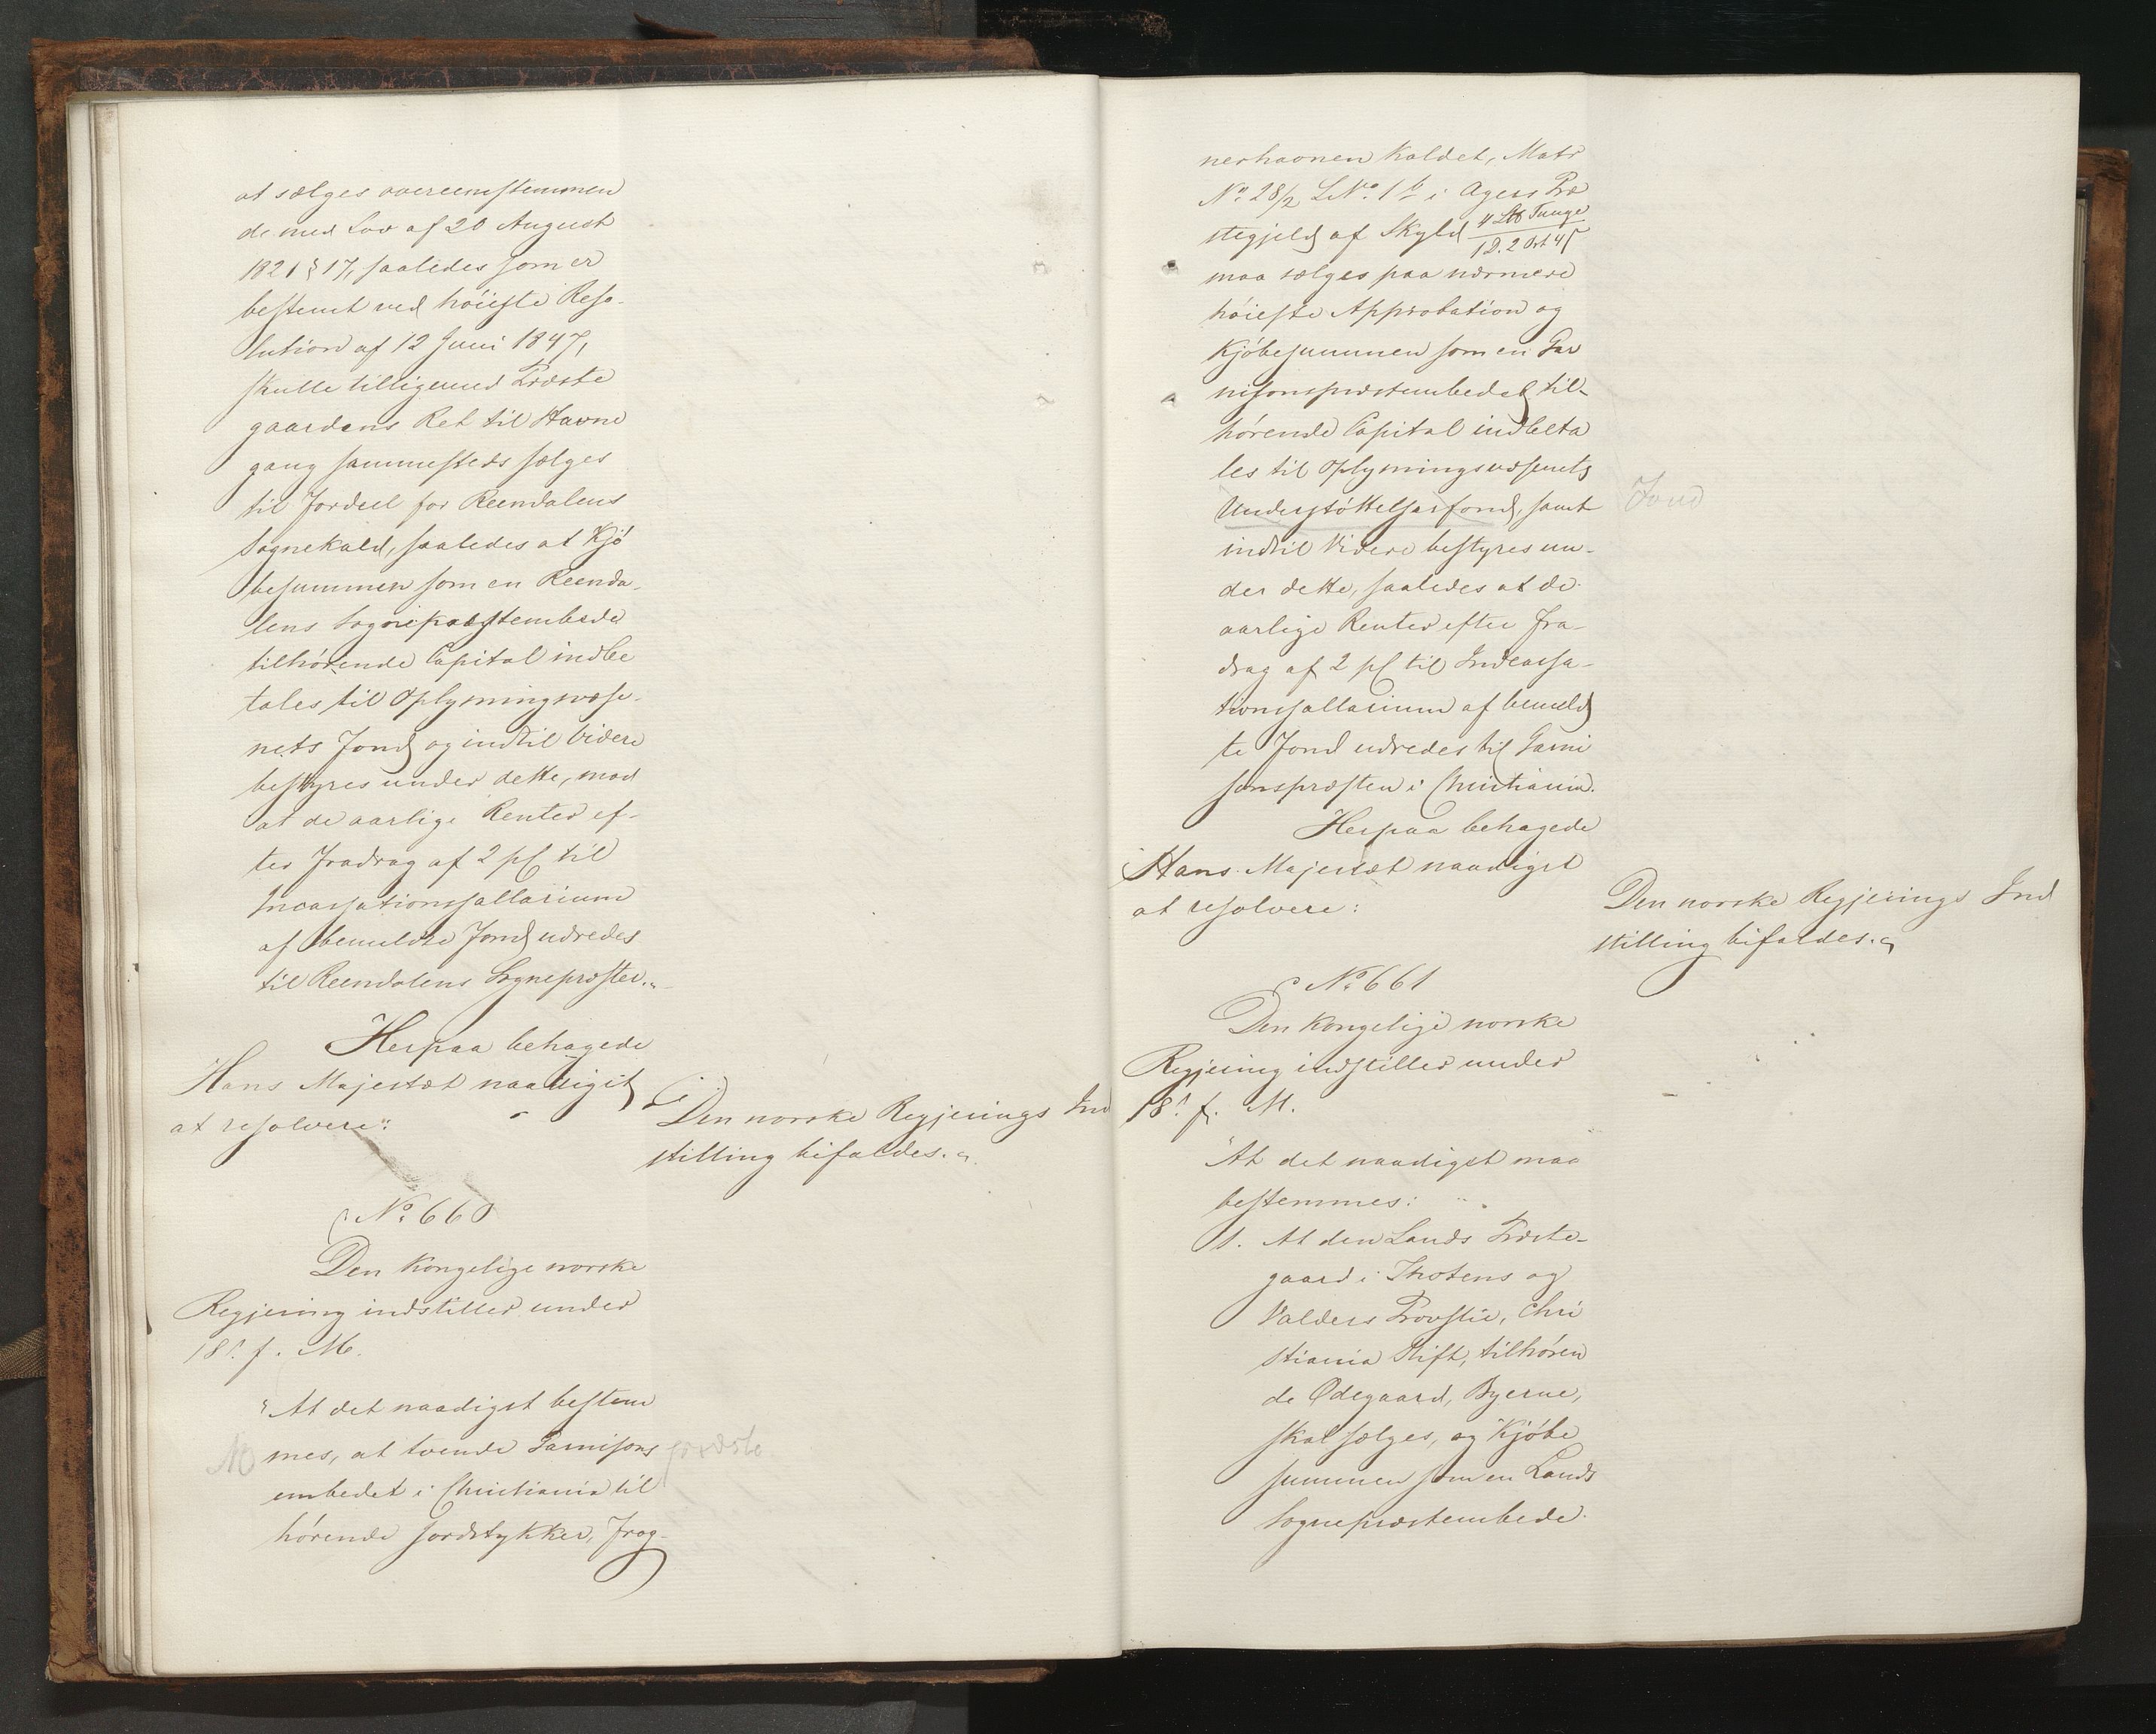 at sælges overeenstemmen
de med Lov af 20 August
1821 § 17, saaledes som er
bestemt ved höieste Reso-
lution af 12 Juni 1847,
skulle tilligemed Præste
gaardens Ret til Havne
gang sammesteds sælges
til Fordeel for Reendalens
Sognekald, saaledes at Kjö
besummen som en Reenda-
lens Sognepræstembede
tilhörende Capital indbe
tales til Oplysningsvæse-
nets Fond og indtil Videre
bestyres under dette, mod
at de aarlige Renter ef-
ter Fradrag af 2 pC til
Incassationssallarium
af bemeldte Fond udredes
til Reendalens Sognepræster."
Herpaa behagede
Hans Majestæt naadigst
at resolvere:
Den norske Regjerings Ind
stilling bifaldes.
No 660
Den Kongelige norske
Regjering indstiller under
18de f. M.
"At det naadigst bestem
mes, at tvende Garnisons præste
embedet i Christiania til
hörende Jordstykker, Frog-
nerhavnen kaldet, Matr
No 28/2 LNo 1b i Agers Præ
stegjeld af Skyld 4 L℔ Tunge
1 D. 2 Ort 4 s
maa sælges paa nærmere
höieste Approbation og
Kjöbesummen som en Gar
nisonspræstembedet til-
hörende Capital indbeta
les til Oplysningsvæsenets
Understöttelsesfond, samt Fond
indtil Videre bestyres un-
der dette, saaledes at de
aarlige Renter efter Fra-
drag af 2 pC til Indcassa-
tionssallarium af bemeld
te Fond udredes til Garni
sonspræsten i Christiania.
Herpaa behagede
Hans Majestæt naadigst
at resolvere:
Den norske Regjerings Ind
stilling bifaldes.
No 661
Den Kongelige norske
Regjering indstiller under
18de f. M.
"At det naadigst maa
bestemmes:
1. At den Lands Præste-
gaard i Thotens og
Valders Provstie, Chri
stiania Stift, tilhören
de Ödegaard, Byerne,
skal sælges, og Kjöbe
summen som en Lands
Sognepræstembede